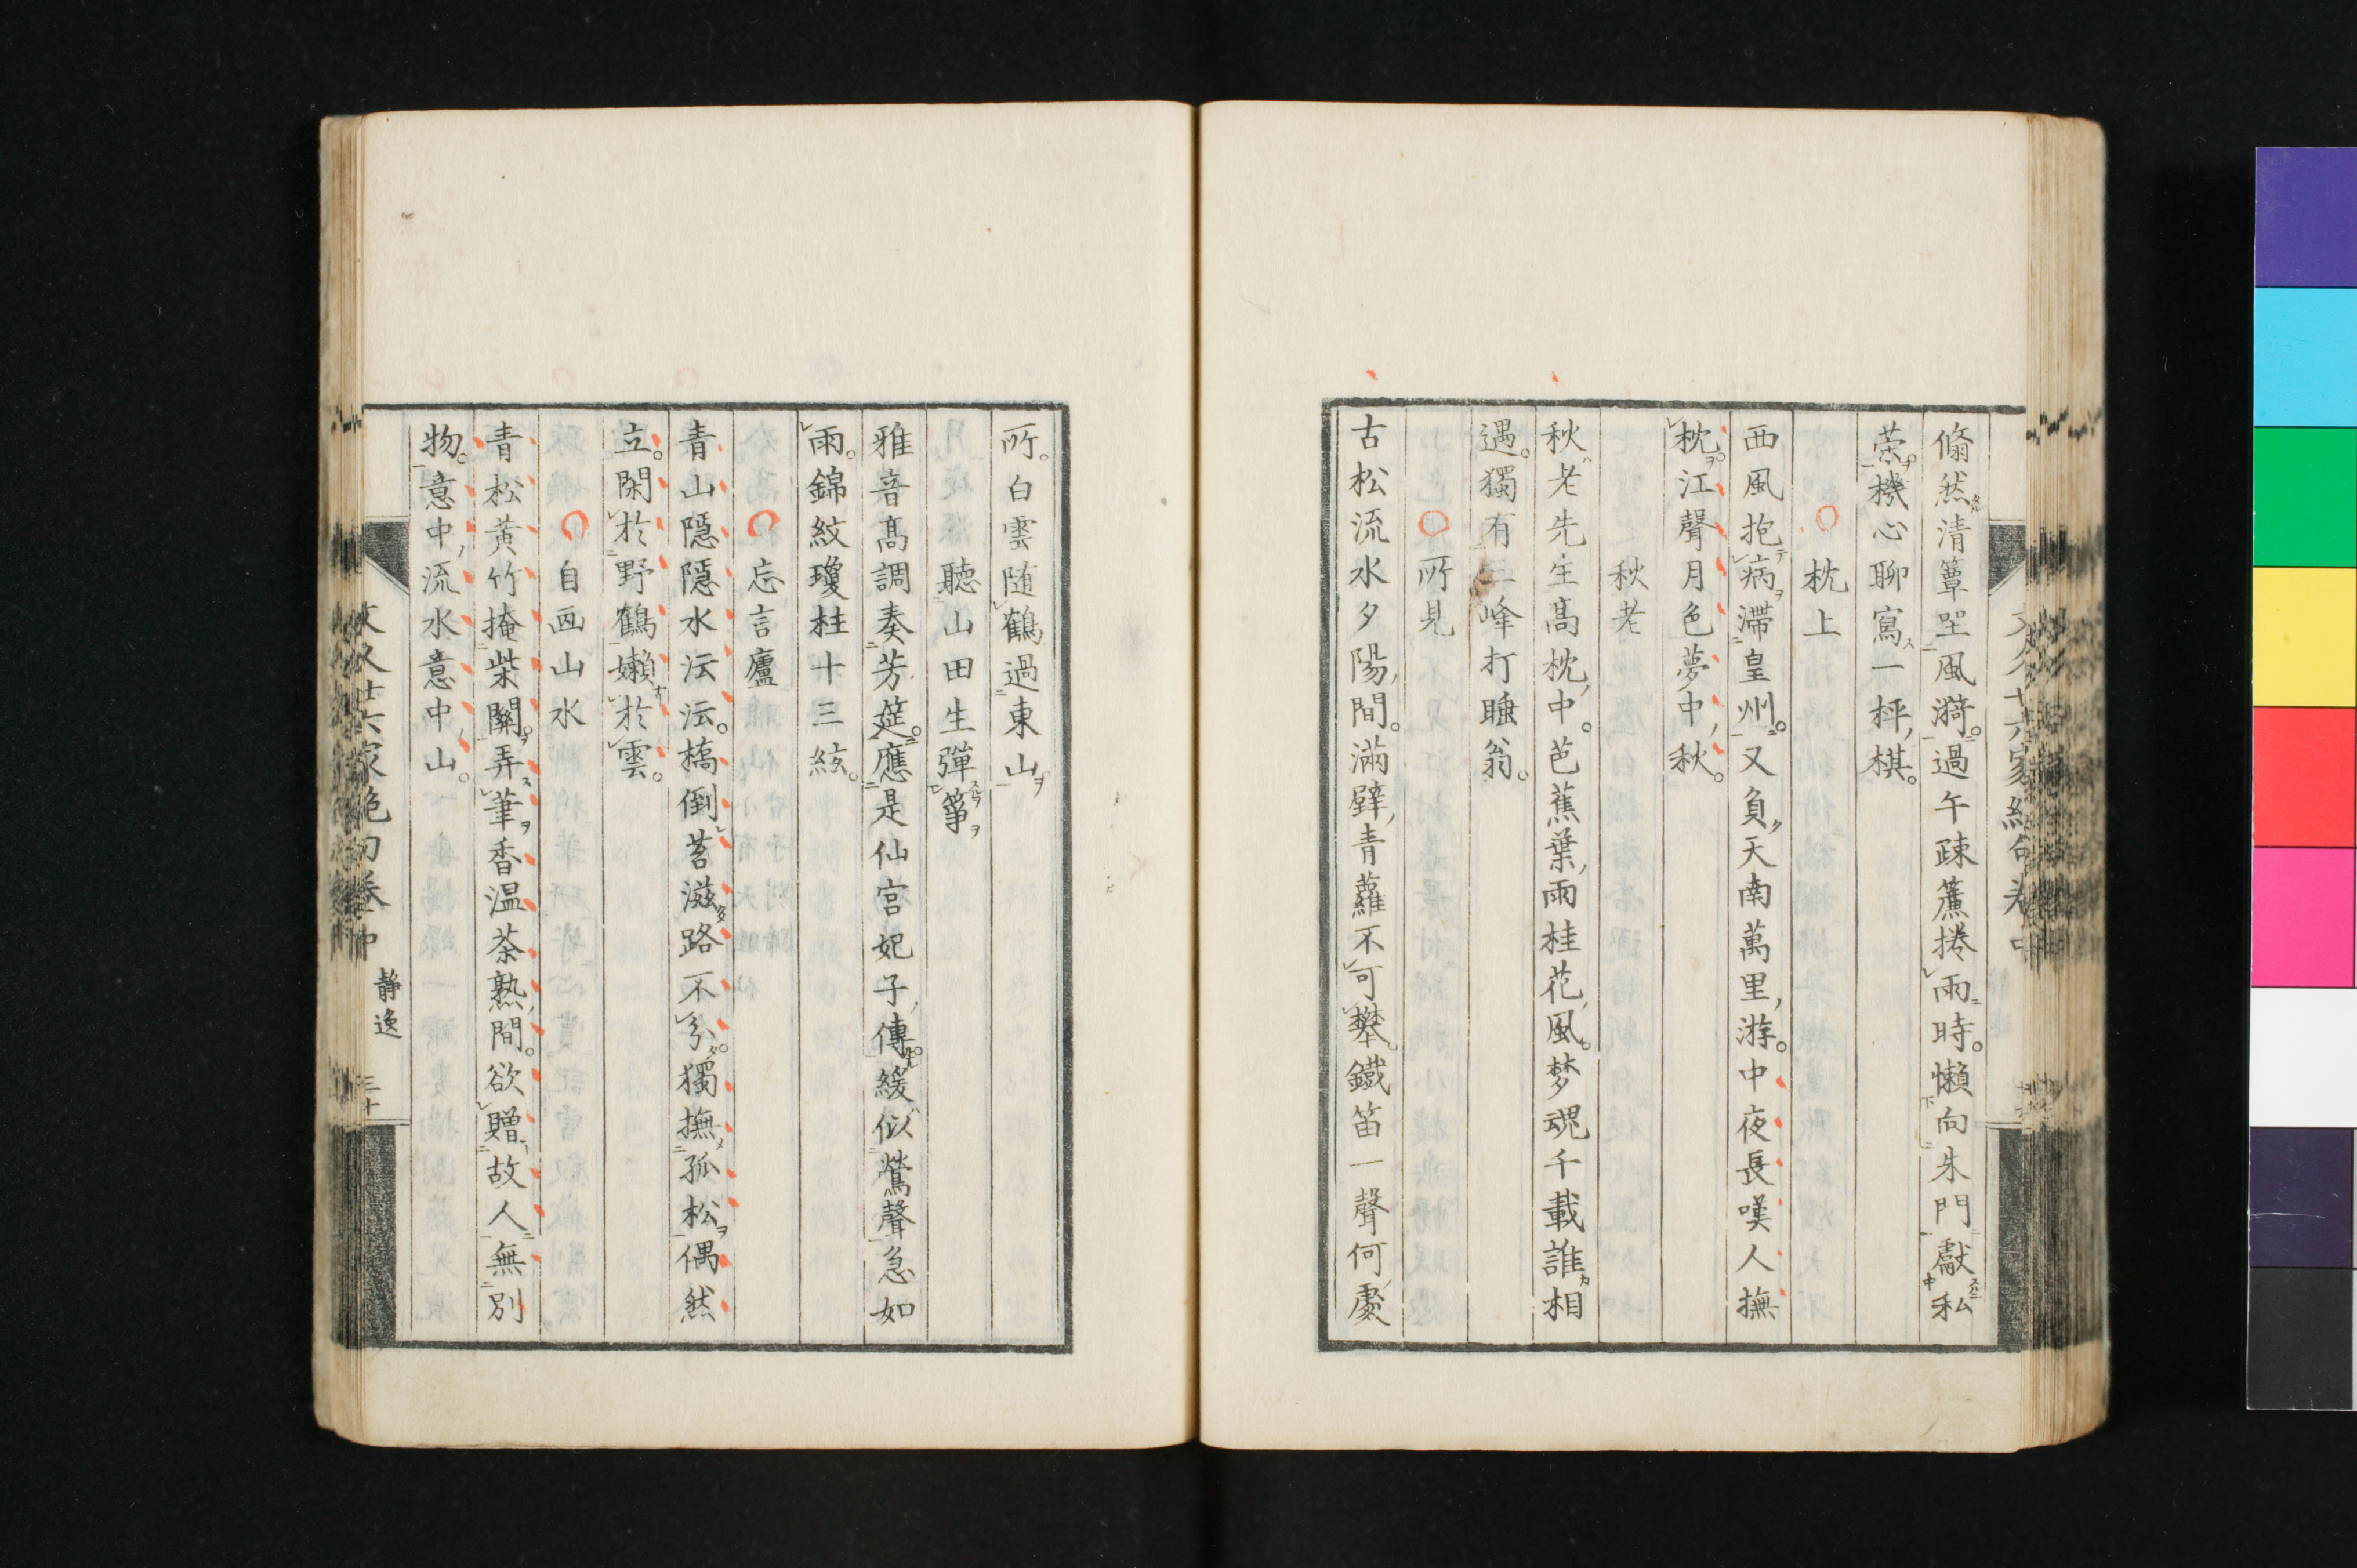 翛然清簟坐風漪。過午疎簾捲雨時。懶向朱門獻私
榮。機心聊寓一枰棋。
枕上
西風抱病滯皇州。又負天南萬里游。中夜長嘆人撫
枕。江聲月色夢中秋。
秋老
秋老先生高枕中。芭蕉葉雨桂花風。梦魂千載誰相
遇。獨有三峰打睡翁。
所見
古松流水夕陽間。滿壁青蘿不可攀。鐵笛一聲何處
所。白雲随鶴過東山
聽山田生彈箏
雅音高調奏芳筵。應是仙宮妃子傳。緩似鶯聲急如
雨。錦紋瓊柱十三絃。
忘言廬
青山隱隱水沄沄。橋倒苔滋路不分。獨撫孤松偶然
立。閑於野鶴嬾於雲。
自画山水
青松黃竹掩柴關。弄筆香温茶熟間。欲贈故人無別
物。意中流水意中山。
文久廿六家絶句卷中 静逸 三十